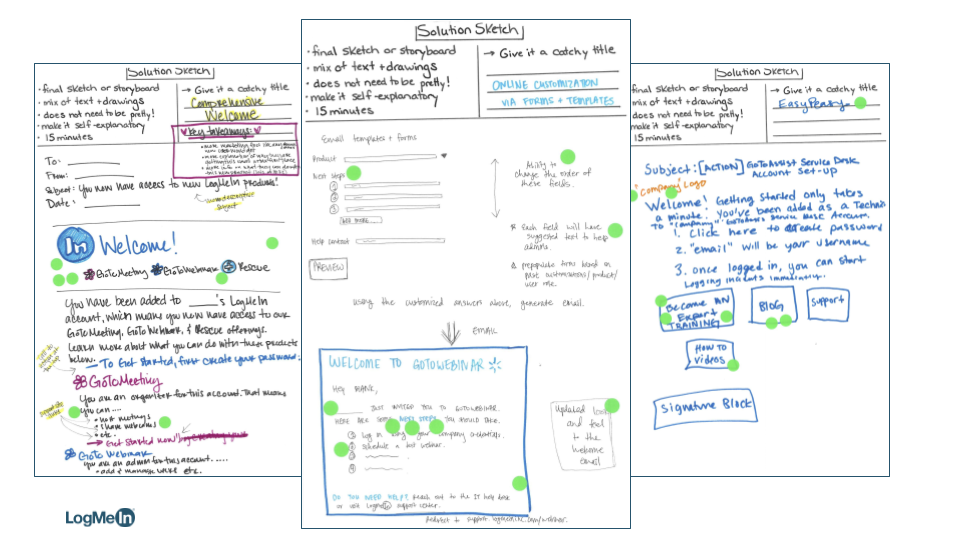 Solution Sketch
• final sketch or storyboard
• mix of text + drawings
• does not need to be pretty!
• make it self-explanatory
• 15 minutes
→ Give it a catchy title
Comprehensive
Welcome
Key takeaways:
To:
From:
Subject: You now have access to new LogMeIn products!
Date:
in Welcome!
GoToMeeting GoToWebinar Rescue
You have been added to ____'s LogMeIn
account, which means you now have access to our
GoToMeeting, GoToWebinar, & Rescue offerings.
Learn more about what you can do with these products
below.
→ To Get Started, first create your password.
GoToMeeting
You are an organizer for this account. That means
you can....
• host meetings
• etc.
→ Get started now!
GoTo Webinar
You are an admin for this account.....
• add & manage users etc.
Solution Sketch
• final sketch or storyboard
• mix of text + drawings
• does not need to be pretty!
• make it self-explanatory
• 15 minutes
→ Give it a catchy title
ONLINE CUSTOMIZATION
VIA FORMS + TEMPLATES
Email templates + forms
Product
Next steps
①
②
③
ADD MORE...
Help contact
PREVIEW
Ability to
change the order of
these fields.
Each field will have
suggested text to help
admins.
prepopulate forms based on
most customizations/product/
user role.
Using the customized answer above, generate email.
EMAIL
WELCOME TO GOTOWEBINAR
HEY FRANK,
JUST INVITED YOU TO GOTOWEBINAR.
HERE ARE SOME NEXT STEPS YOU SHOULD TAKE.
① Log in using your company credentials.
② Schedule a test webinar.
③
④
DO YOU NEED HELP? Reach out to the IT help desk
or visit LogMeIn support center.
Updated look
and feel
to the
welcome
email
Solution Sketch
• final sketch or storyboard
• mix of text + drawings
• does not need to be pretty!
• make it self-explanatory
• 15 minutes
→ Give it a catchy title
Easy Peasy
Subject: [ACTION] GoToAssist Service Desk
Account Set-up
"Company" Logo
Welcome! Getting Started only takes
a minute. You've been added as a Technician
To "Company" GoToAssist Service Desk Account.
1. Click here to create password
2. "email" will be your username
3. once logged in, you can start
Logging incidents immediately.
Become AN
Expert
TRAINING
BLOG
Support
How to
Videos
Signature Block
LogMeIn